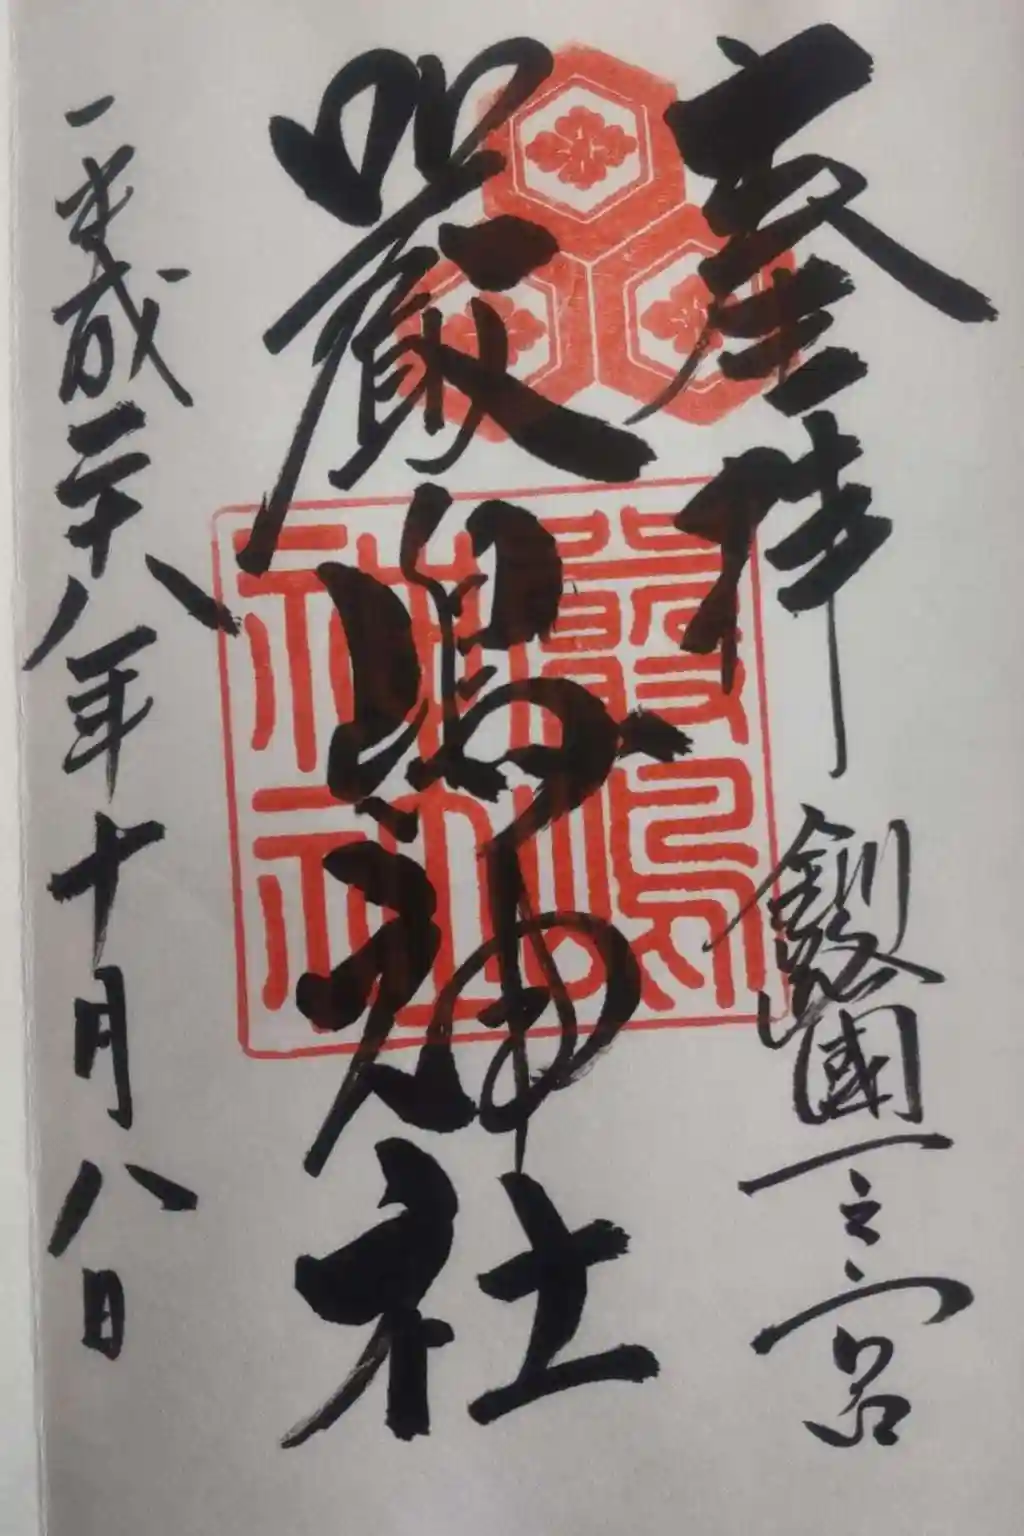 奉拝
國一之宮
嚴島神社
嚴島
神社
平成二十八年十月八日